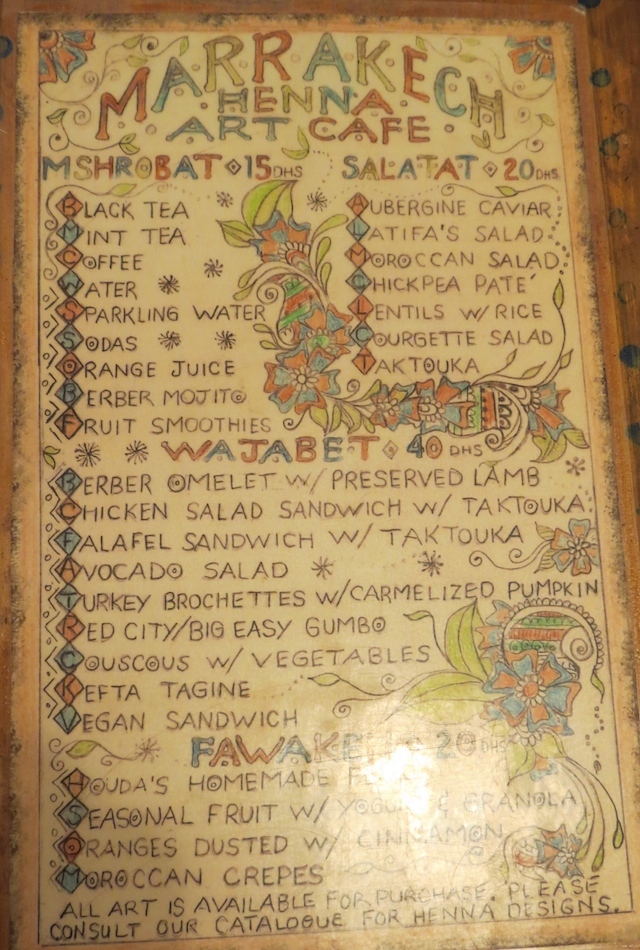 MARRAKECH
HENNA
ART CAFE
MSHROBAT 15DHS
BLACK TEA
MINT TEA
COFFEE
WATER
SPARKLING WATER
SODAS
ORANGE JUICE
BERBER MOJITO
FRUIT SMOOTHIES
SALATAT 20DHS
AUBERGINE CAVIAR
LATIFA'S SALAD
MOROCCAN SALAD
CHICKPEA PATÉ
LENTILS W/ RICE
COURGETTE SALAD
TAKTOUKA
WAJABET 40 DHS
BERBER OMELET W/ PRESERVED LAMB
CHICKEN SALAD SANDWICH W/ TAKTOUKA
FALAFEL SANDWICH W/ TAKTOUKA
AVOCADO SALAD
TURKEY BROCHETTES W/CARMELIZED PUMPKIN
RED CITY/BIG EASY GUMBO
COUSCOUS W/ VEGETABLES
KEFTA TAGINE
VEGAN SANDWICH
20 DHS
HOUDA'S HOMEMADE
SEASONAL FRUIT W/ YOGURT & GRANOLA
ORANGES DUSTED W/ CINNAMON
MOROCCAN CREPES
ALL ART IS AVAILABLE FOR PURCHASE. PLEASE
CONSULT OUR CATALOGUE FOR HENNA DESIGNS.